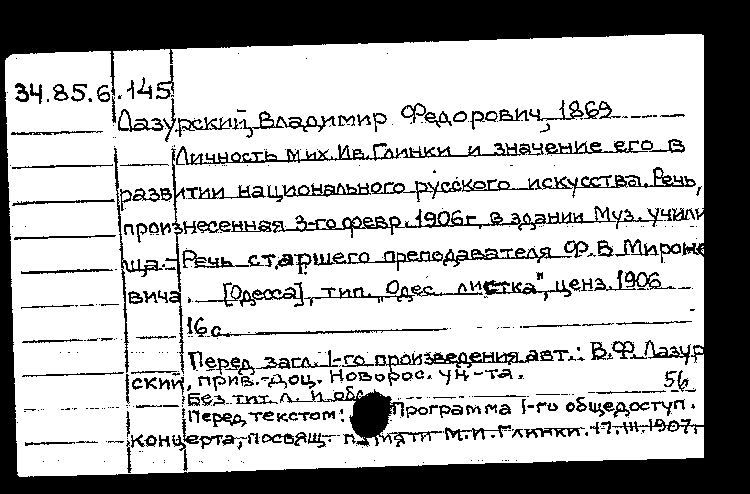 34.85.6.145
Лазурский, Владимир Федорович, 1869
Личность Мих. Ив. Глинки и значение его в
развитии национального русского искусства. Речь,
произнесенная 3-го февр. 1906г. в здании Муз. учили
ща.- Речь старшего преподавателя Ф.В Мироно
вича. [Одесса], тип. "Одес. листка", ценз. 1906
16 с.
Перед загл. 1-го произведения авт.: В.Ф. Лазур
ский, прив.-доц. Новорос. ун-та.
56
Без тит. л. и обл.
Перед текстом: Программа 1-го общедоступ.
концерта, посвящ. памяти М.И. Глинки. 17.III.1907.